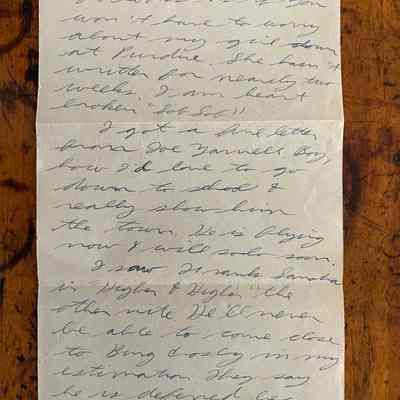 won't have to worry
about my girl down
at Purdue. She hasn't
written for nearly two
weeks. I am heart
broken "Sob Sob"!
I got a fine letter
from Joe Yarnell. Boy,
how I'd love to go
down to school &
really show him
the town. He is flying
now & will solo soon.
I saw Frank Sinatra
in Higher & Higher" the
other nite. He'll never
be able to come close
to Bing Crosby in my
estimation. They say
he is deferred